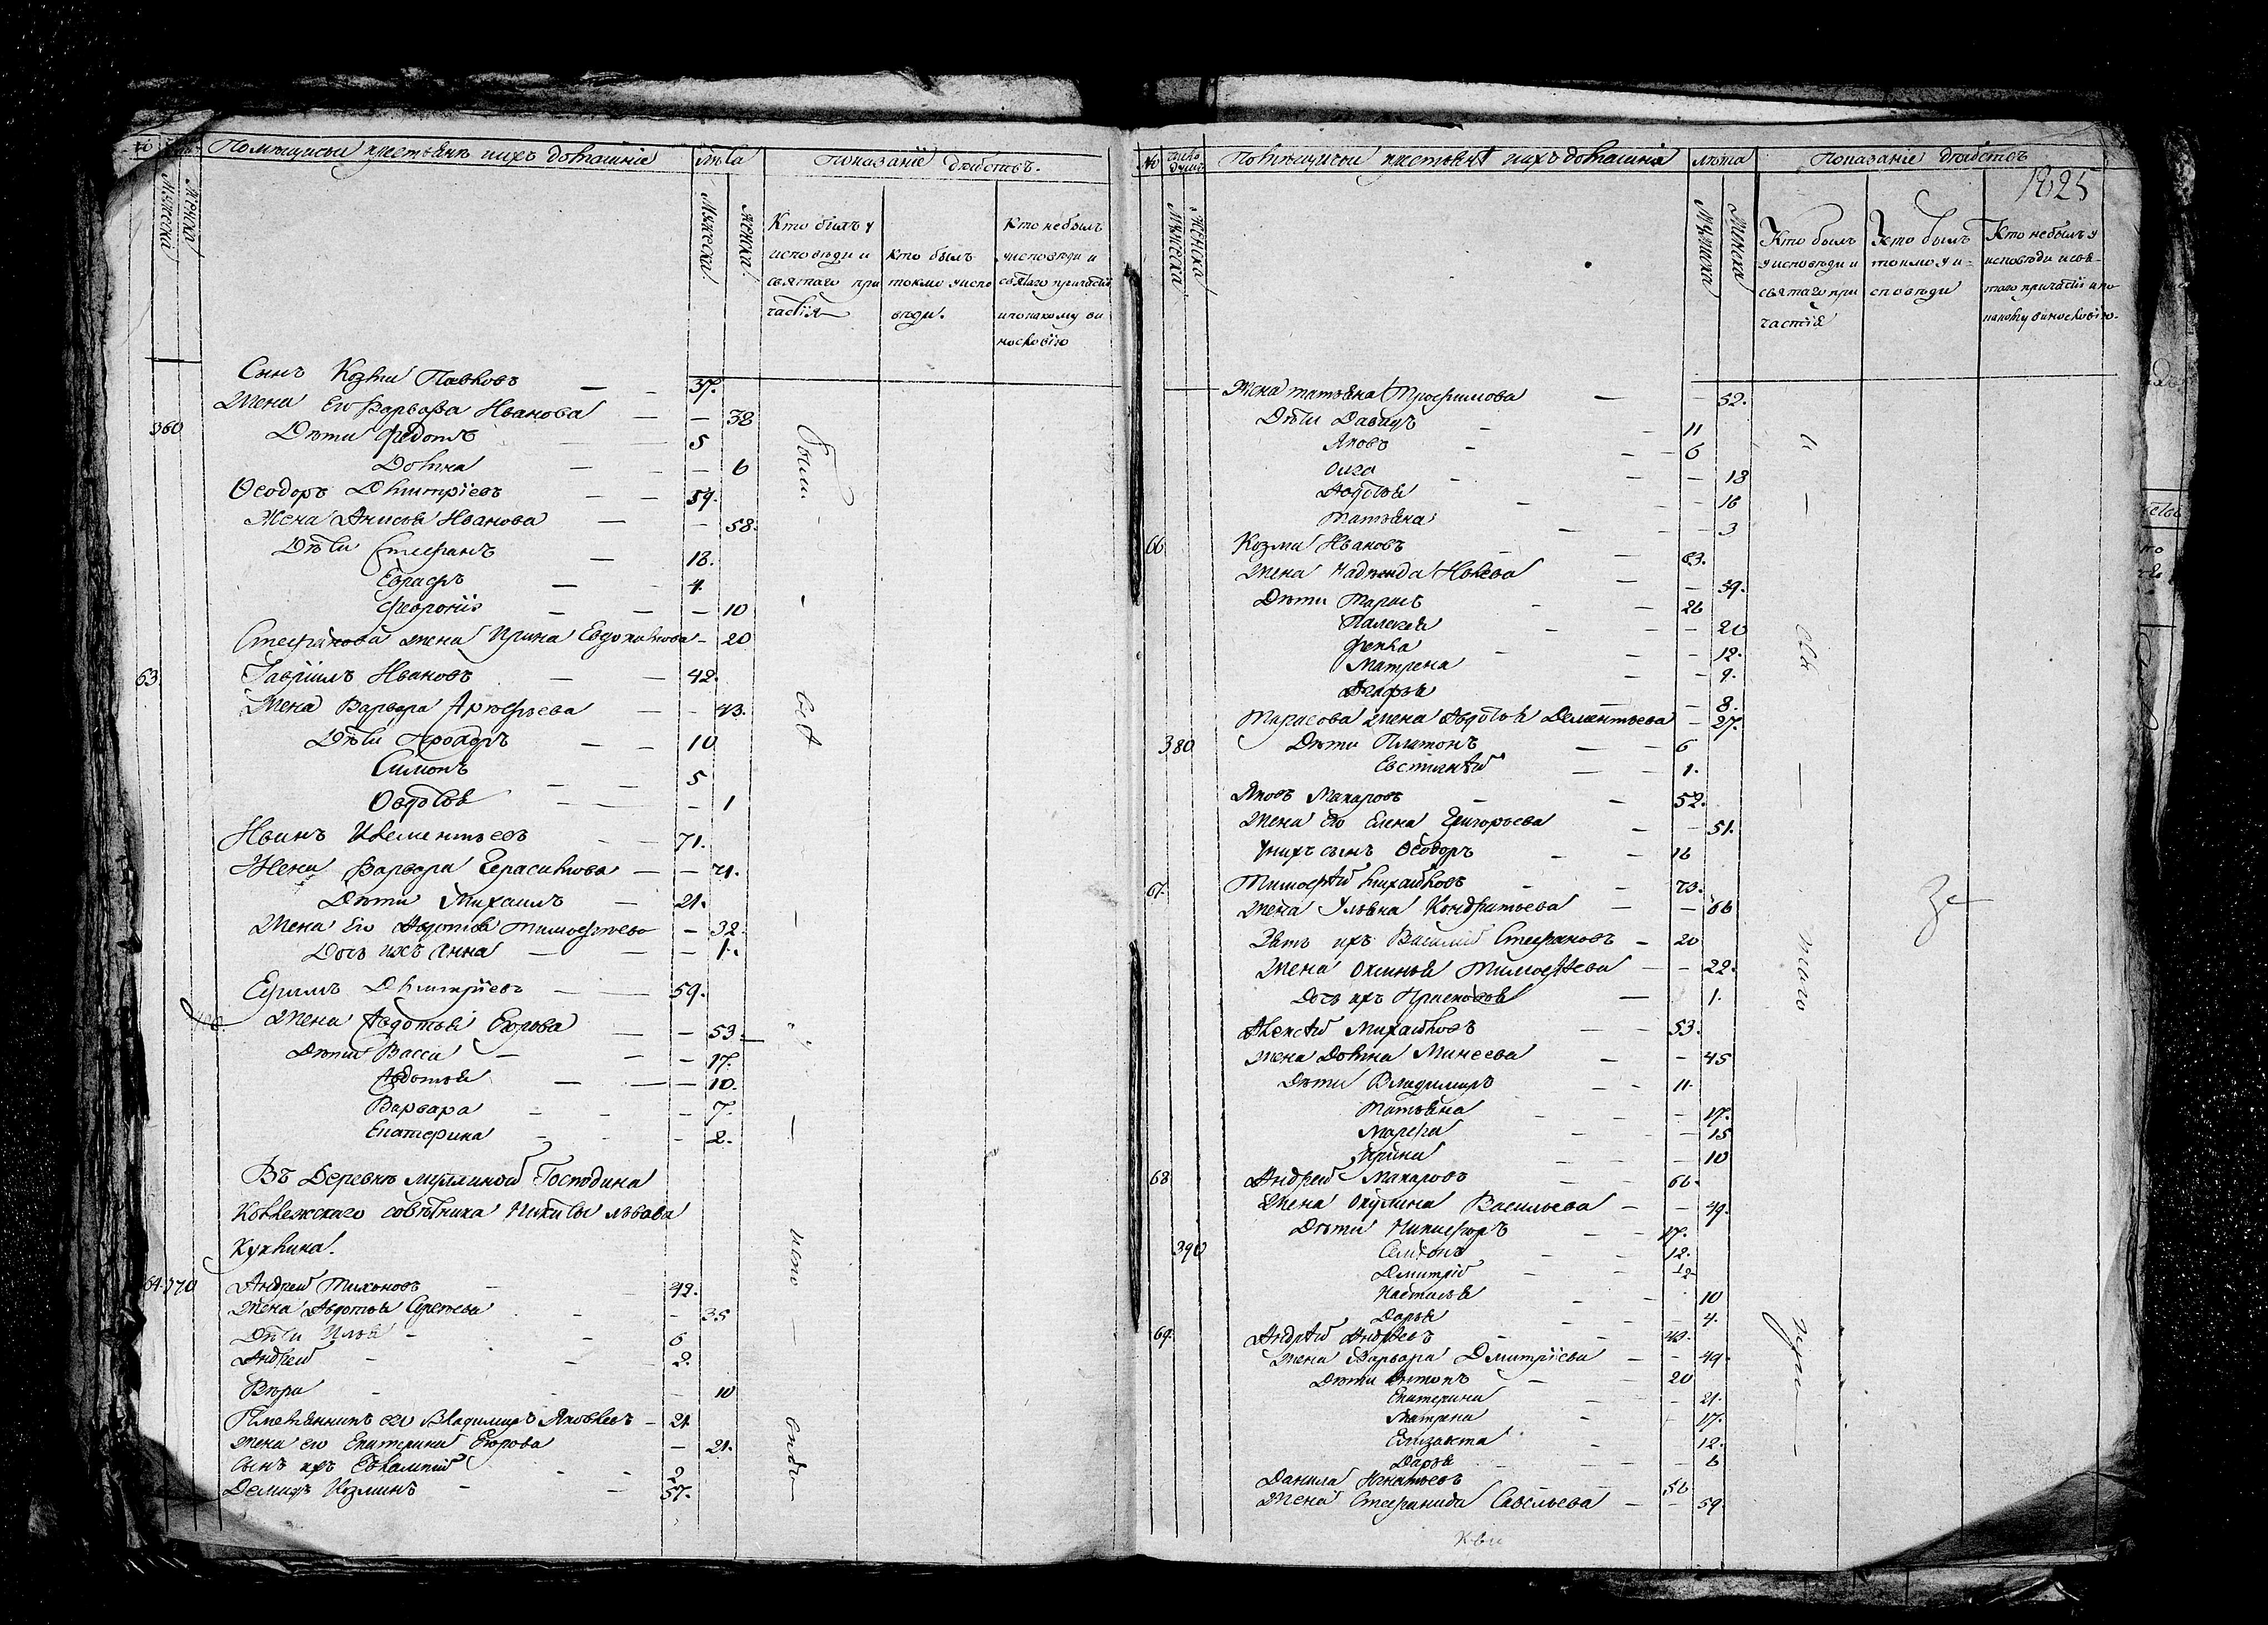 Помѣщичьи крестьянѣ и ихъ домашніе лѣта Показаніе дѣйствъ.
Мужеска Женска Мужеска Женска
Кто былъ у исповѣди и святаго причастія
кто былъ токмо у исповѣди.
Кто небылъ у исповѣди и святаго причастія и по какому винословію
Сынъ Козма Павловъ — 37.
Жена Его Варвара Иванова — 38
360 Дѣти Федотъ 5
Домна — 6
Ѳеодоръ Дмитріевъ — 59.
Жена Анисья Иванова — 58.
Дѣти Стефанъ — 18.
Евграфъ — 4.
Февронія — 10
Стефанова жена Ирина Евдокимова — 20
63. Гавріилъ Ивановъ — 42.
Жена Варвара Аргефьева — 43.
Дѣти — 10
Симонъ — 5
Овдотья — 1
Иванъ Клементьевъ — 71.
Жена Варвара Герасимова — 71.
Дѣти Михаилъ — 21.
Жена Его Авдотья Тимофеева — 32.
Дочь ихъ Анна — 1.
Ефимъ Дмитріевъ — 59.
Жена Авдотья Егорова — 53.
Дѣти Васса — 17.
Авдотья — 10.
Варвара — 7.
Екатерина — 2.
Въ Деревнѣ Господина
Коллежскаго совѣтника Никиты Львова
64. 370 Андрей Тихоновъ — 42.
Жена Авдотья Сергеева — 35
Дѣти Илья — 6
Андрей — 2.
Вѣра — 10
Племянникъ его Владимиръ Яковлевъ — 21
жена его Екатерина Егорова — 21.
Сынъ ихъ Евлампій — 2
Демидъ Козминъ — 57.
были — всѣ — —
№ число душъ Помѣщичьи крестьянѣ и ихъ домашнія лѣта Показаніе дѣйствъ
1825
Мужеска Женска Мужеска Женска
Кто былъ у исповѣди и святаго причастія
Кто былъ токмо у исповѣди
Кто небылъ у исповѣди и святаго причастія и по какому винословію.
Жена татьяна Трофимова — 52.
Дѣти Давыдъ — 11
Яковъ — 6
Олга — 18
Авдотья — 16
Татьяна — 3
66 Козма Ивановъ — 63.
Жена Надежда — 59.
Дѣти Тарасъ — 26
Палагея — 20
Фекла — 12.
Матрена — 9.
— 8.
Тарасова жена Авдотья Дементьева — 27.
380 Дѣти Платонъ — 6
Евстигнѣй — 1.
Яковъ Макаровъ — 52.
Жена Его Елена Григорьева — 51.
У нихъ сынъ Ѳеодоръ — 16
67. Тимофѣй Михайловъ — 73.
Жена Ульяна Кондратьева — 66
Зять ихъ Василий Стефановъ — 20
Жена Тимофѣева — 22.
Дочь ихъ Прасковья — 1.
Алексѣй Михайловъ — 53.
Жена Домна Минеева — 45
Дѣти Владимиръ — 11.
Татьяна — 17.
Марфа — 15
Ирина — 10
68 Андрей Макаровъ — 66.
Жена Окулина Васильева — 49.
Дѣти Никифоръ — 17.
390 Семіонъ — 12.
Дмитрій — 12
Настасья — 10
Дарья — 4.
69. Андрѣй Андрѣевъ — 49.
Жена Варвара Дмитріева — 49.
Дѣти Антонъ — 20
Екатерина — 21.
Матрена — 17.
Елизавета — 12.
Дарья — 6
Данила Игнатьевъ — 56
Жена Стефанида Савельева — 59.